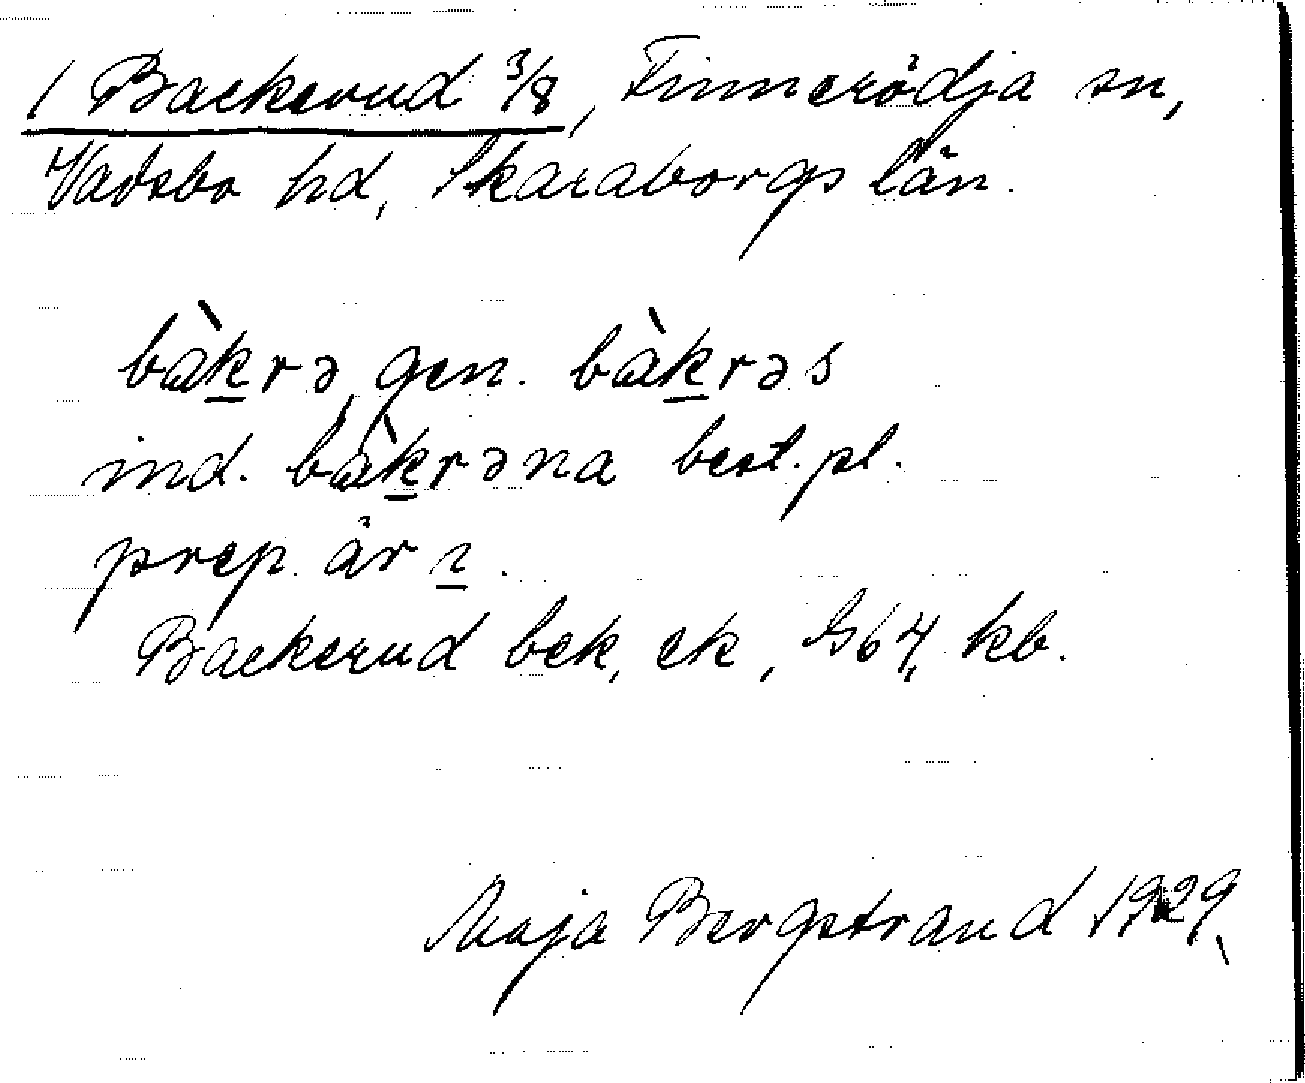 1 Backerud 3/8, Finnerödja sn,
Vadsbo hd, Skaraborgs län.
bàkrə, gen. bàkrəs
ind. bàkrəna best. pl.
prep. är ɩ.
Backerud bek, ek, G64, kb.
Maja Bergstrand 1929.